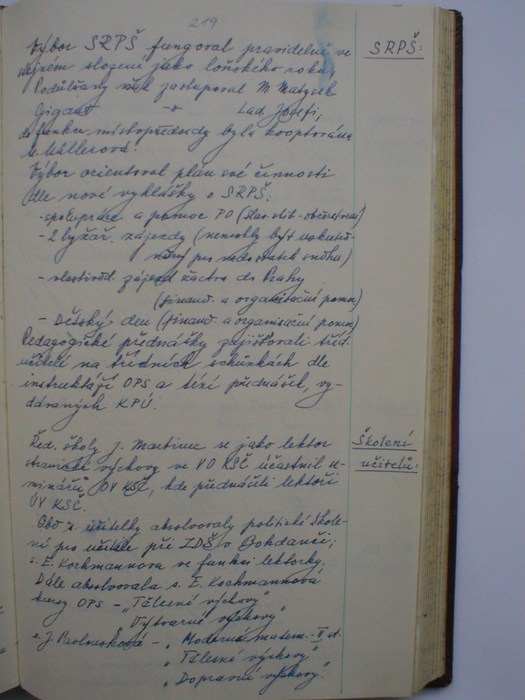 219
Výbor SRPŠ fungoval pravidelně ve
SRPŠ:
stejném složení jako loňského roku,
Podůlšany však zastupoval M. Matysek
Gigant -"- Lad. Josefi,
do funkce místopředsedy byla kooptována
Müllerová.
Výbor orientoval plán své činnosti
dle nové vyhlášky o SRPŠ:
- spolupráce a pomoc PO (slav. slib - občerstvení)
- 2 lyžař. zájezdy (nemohly být uskuteč-
něny pro nedostatek sněhu)
- vlastivěd. zájezd žactva do Prahy
(finanč. a organizační pomoc)
- Dětský den (finanč. a organisační pomoc)
Pedagogické přednášky zajišťovali tříd.
učitelé na třídních schůzkách dle
instruktáží OPS a tezí přednášek, vy-
daných KPÚ.
Řed. školy J. Martinec se jako lektor
Školení
učitelů:
stranické výchovy ve VO KSČ účastnil se-
minářů OV KSČ, kde přednášeli lektoři
ÚV KSČ.
Obě s. učitelky absolvovaly politické škole-
ní pro učitele při ZDŠ v Bohdanči;
s. E. Kochmannová ve funkci lektorky;
Dále absolvovala s. E. Kochmannová
kursy OPS - "Tělesné výchovy"
"Výtvarné výchovy"
s. J. - "Moderní matem. - II. st.
"Tělesné výchovy"
"Dopravní výchovy."